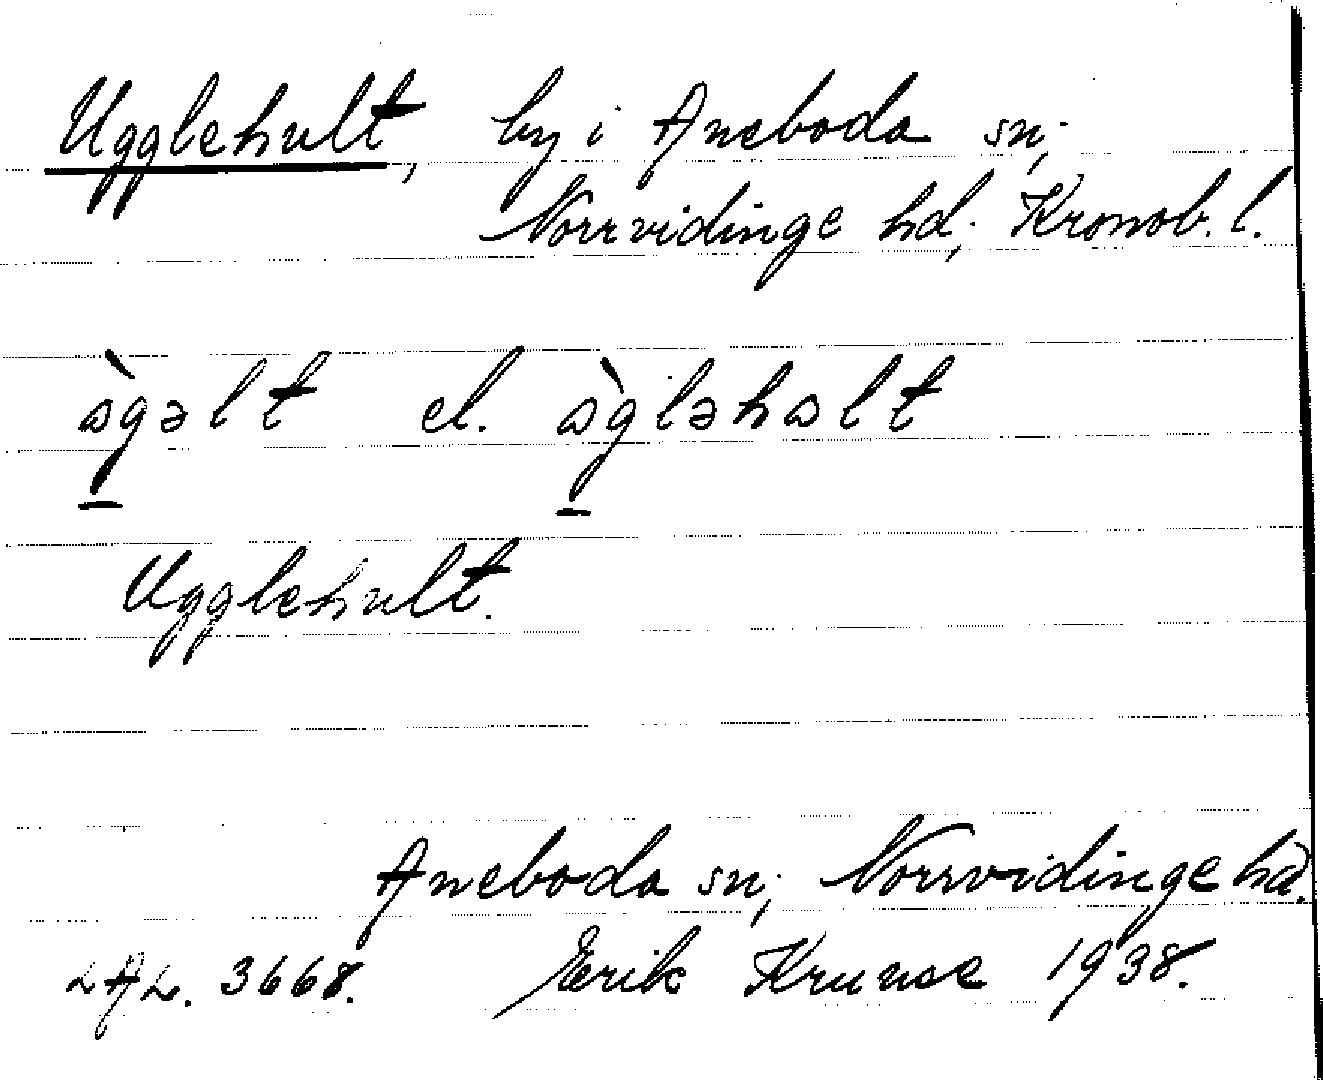 Ugglehult, by i Aneboda sn;
Norrvidinge hd; Kronob. l.
ὰgəlt el. ὰgləhαlt
Ugglehult.
Aneboda sn; Norrvidinge hd.
LAL. 3668. Erik Kruuse 1938.